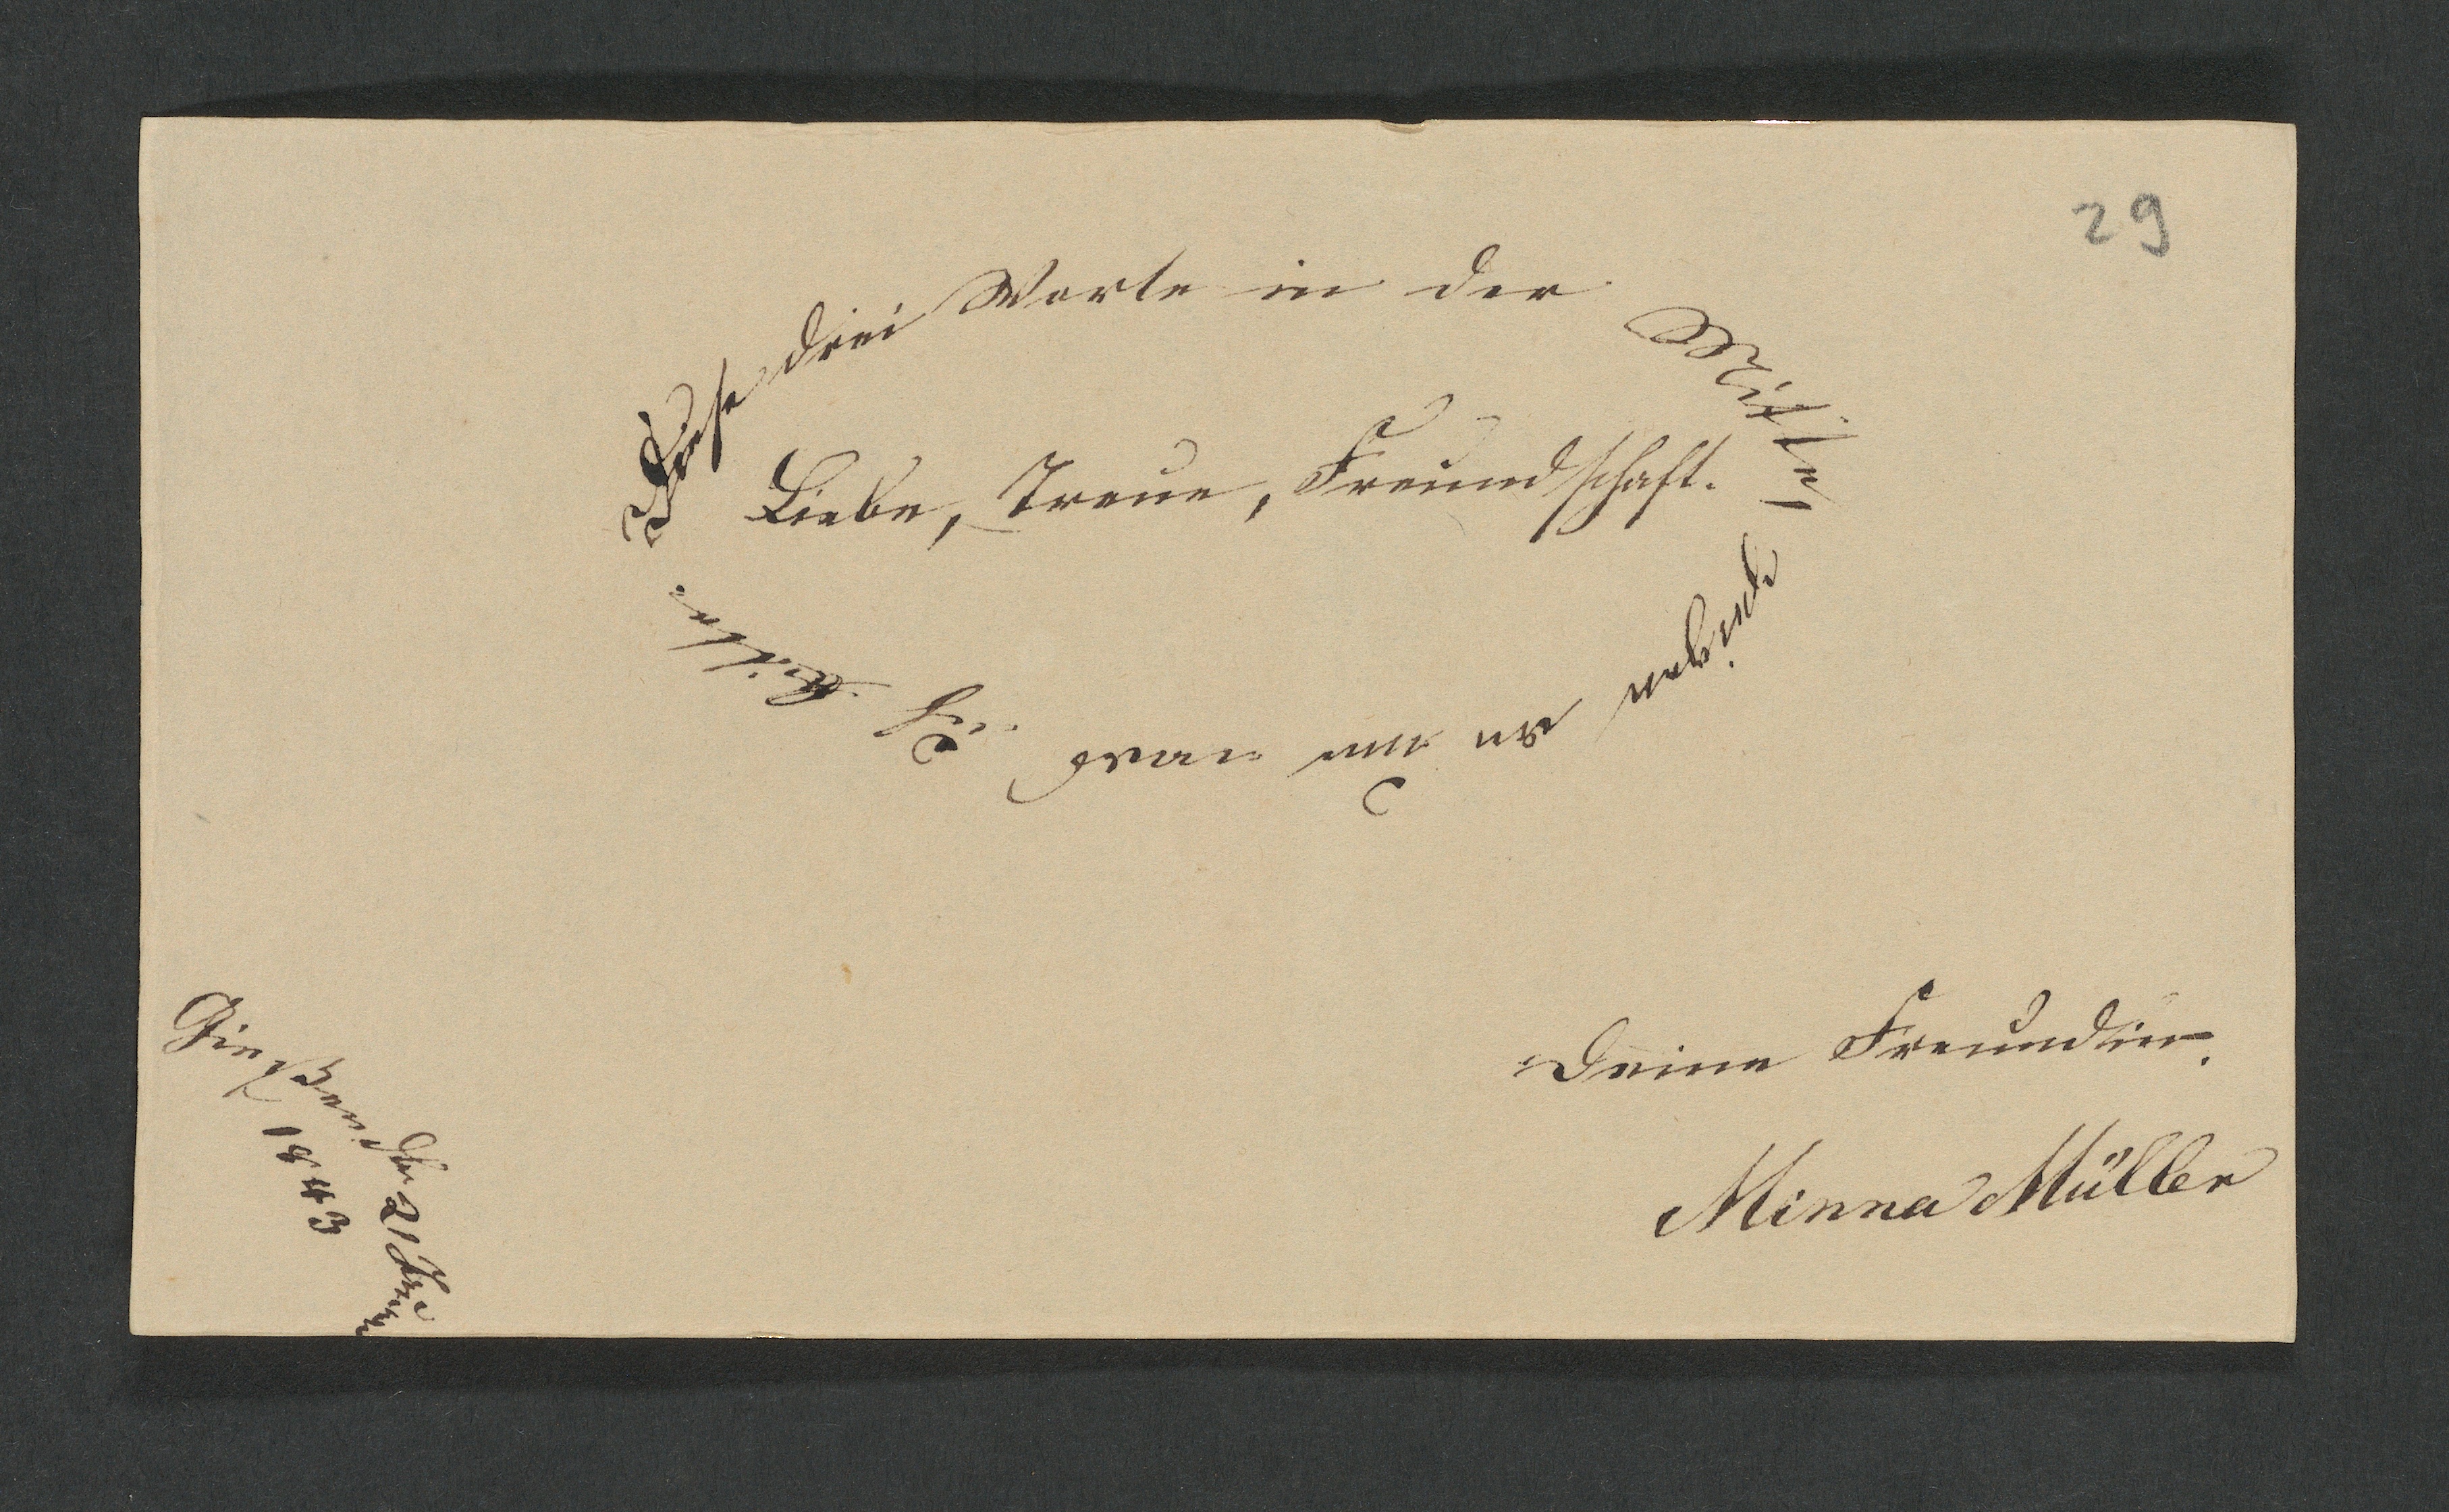 29
Diese drei Worte in der Mitte,
ich bitte.
Liebe, Treue, Freundschaft.
Deine Freundin.
Minna Müller
Gießen den 21
1843